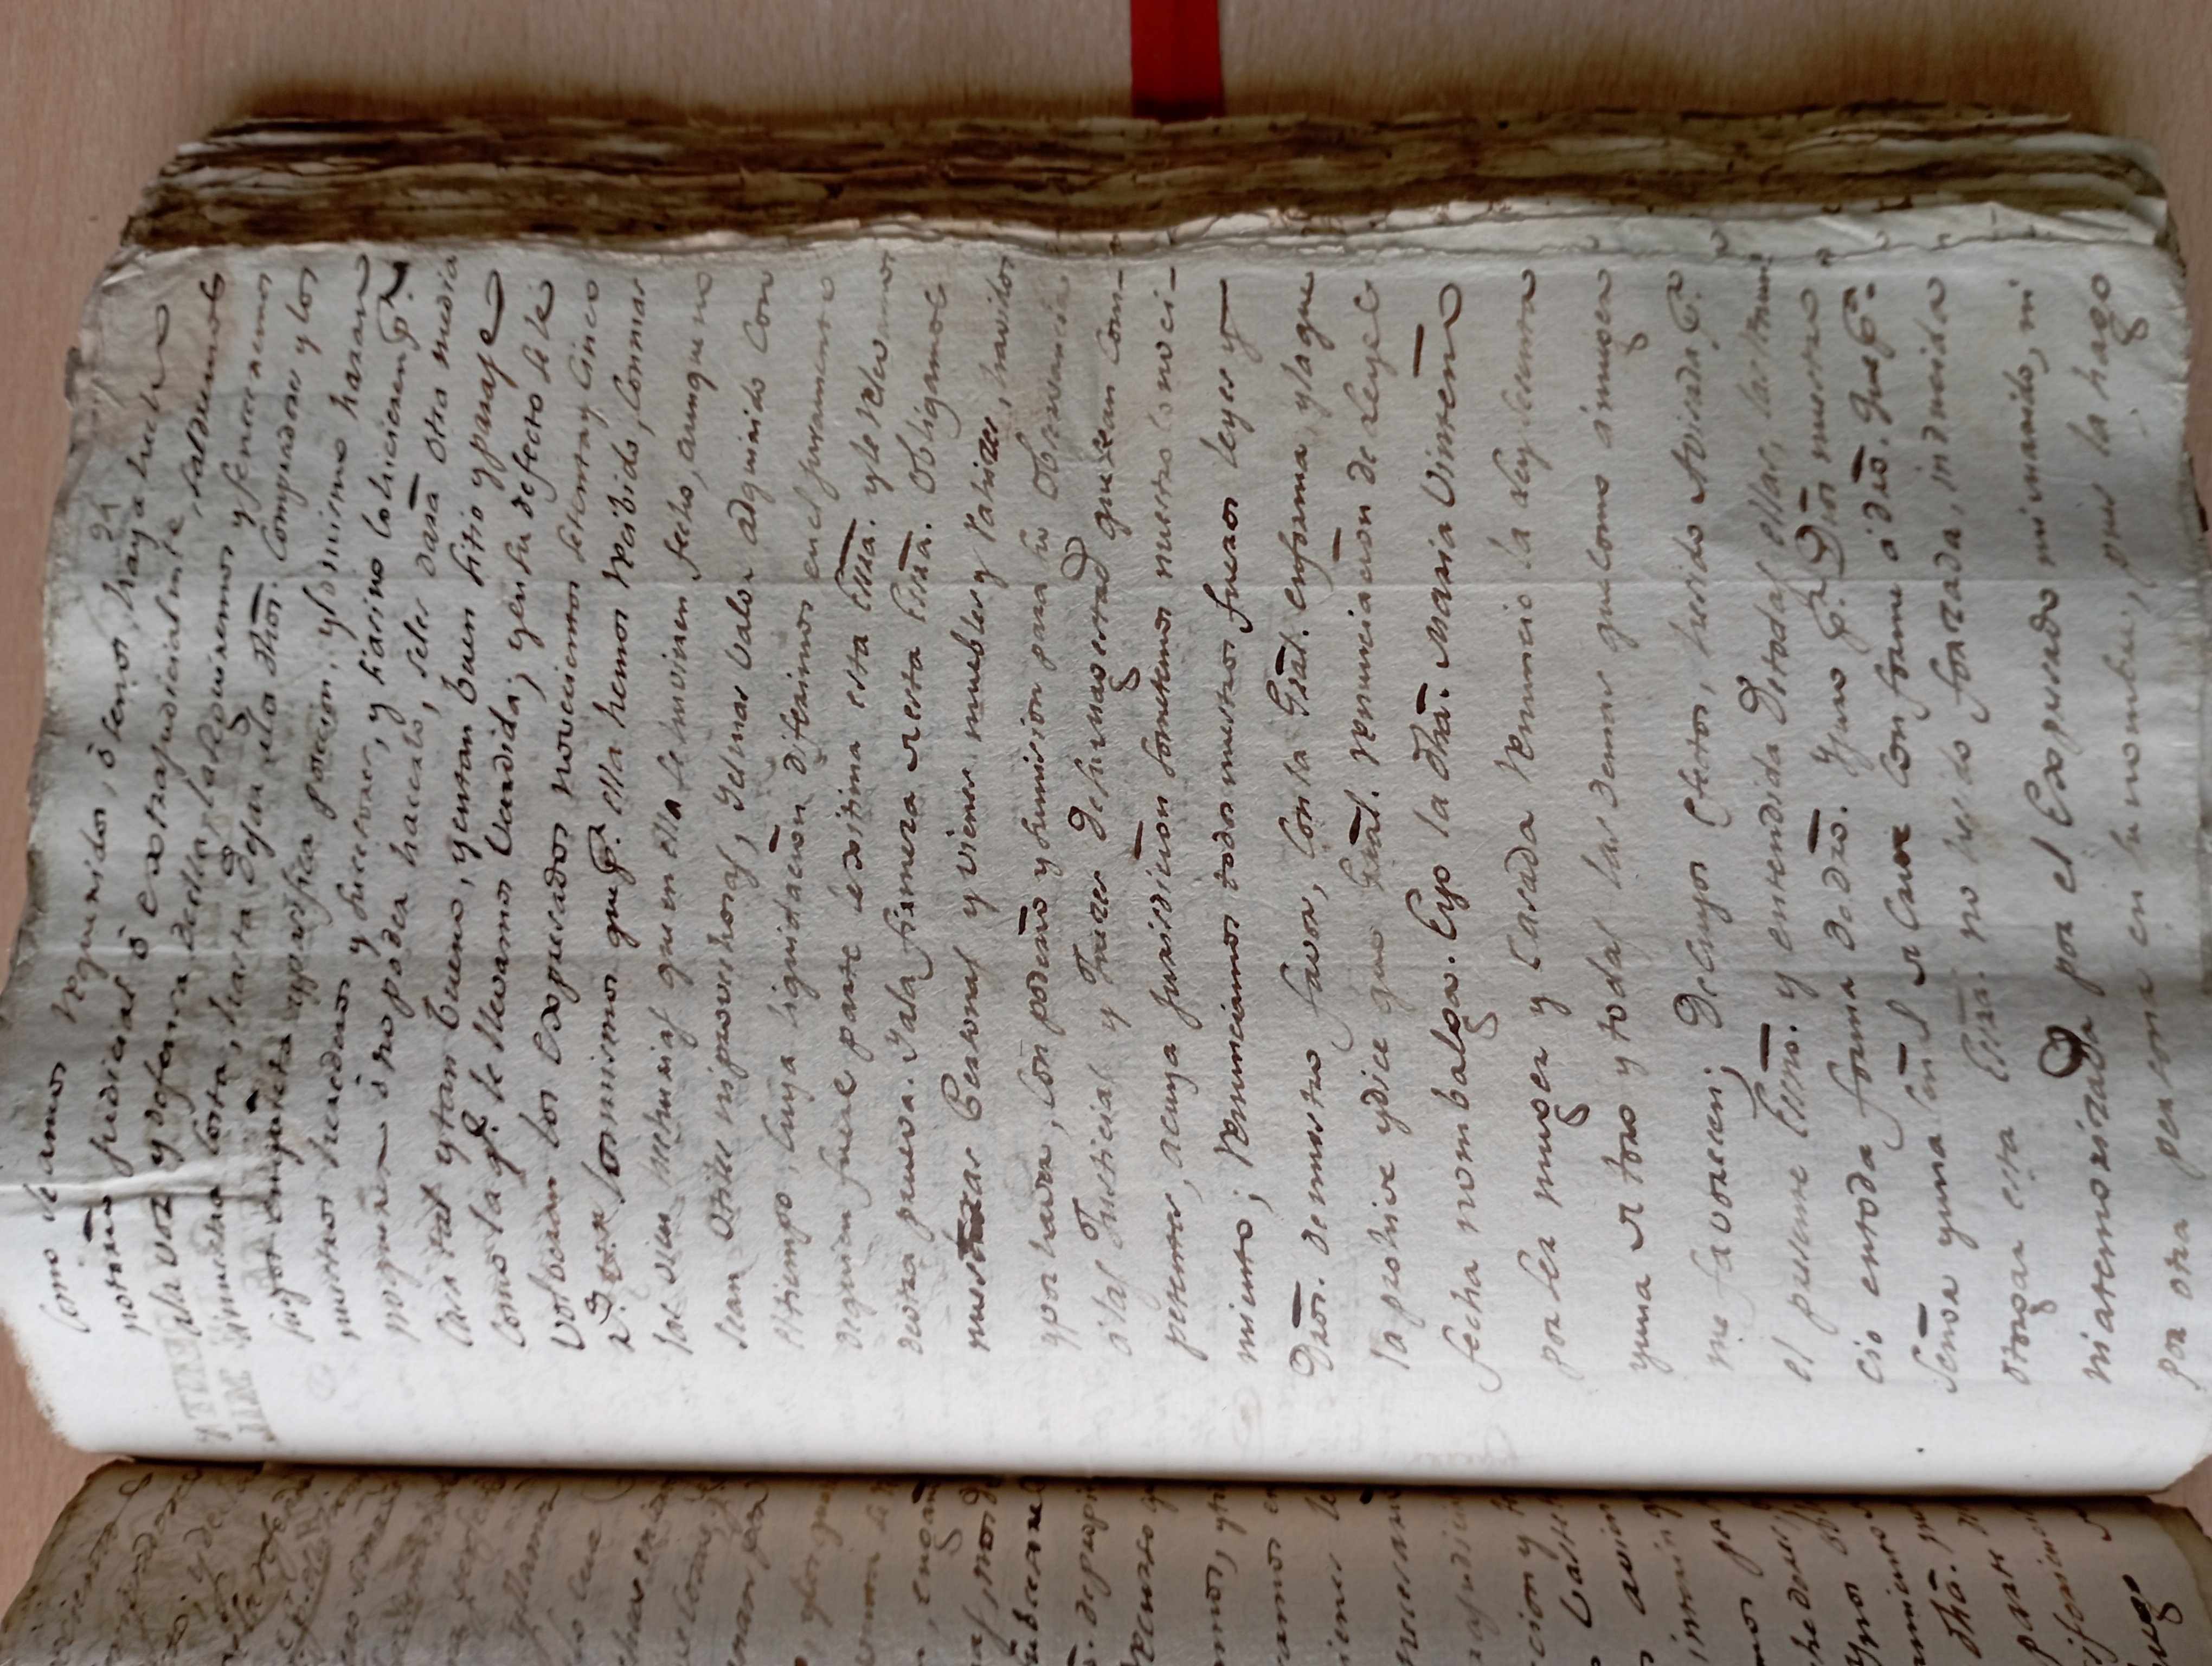 94
Como seamos requeridos, ó senos haya hecho
notorio Judicial ó extrajudicialmte, saldremos
ala voz y defensa deella, la seguiremos y feneceremos
anuestra Costa, hasta dejar alos dhõs. Compradores y los
suyos enquieta y pasifica posecion, ylomismo haran
nuestros herederos y sucesores, y siasino lohicieren pr.
noquerer ó no poder hacerlo, seles dará otra media
Casa tal ytan buena, yentan buen sitio y paraje
Como la qe. le llevamos Vendida; yensu defecto se le
volveran los expresados novecientos setenta y Cinco
rs. vn. losmismos que pr. ella hemos recibido, Conmas
las vien hechurias que en ella se huvieren fecho, aunque no
sean Utiles niprovechosas, yelmas valor adquirido Con
eltiempo, Cuya liquidacion diferimos en el Juramento
dequien fuere parte lexitima esta Essrã. yle relevamos
deotra prueva. Yala firmeza de esta Essrã. Obligamos
nuestras Personas y vienes muebles y rahizes, havidos
ypor haver, Con poderio y sumision para su Observancia
álas Justicias y Juezes desumagestad quesean Com-
petentes, acuya Jurisdicion sometemos nuestro conoci-
miento; renunciamos todos nuestros fueros leyes y
Drõs. denuestro favor, Conla Grãl. enforma, ylaque
la prohive ydice que Grãl. renunciacion de Leyes
fecha nombalga. Eyo la dhã. Maria Vinteño
por ser muger y Casada renuncio la Ley sesenta
yuna de toro y todas las demas que como ámuger
me favorecen; Decuyos efectos, hesido Avisada pr.
el presente Essnõ. y entendida Detodas ellas, las renun-
cio entoda forma dedrõ. Yjuro pr. Dios nuestro
Señor yuna señal de Cruz Conforme ádrõ. Que pa.
otorgar esta Essrã. no hesido forzada, inducida
niatemorizada por el Expresado mi marido, ni
por otra persona en su nombre, pues la hago